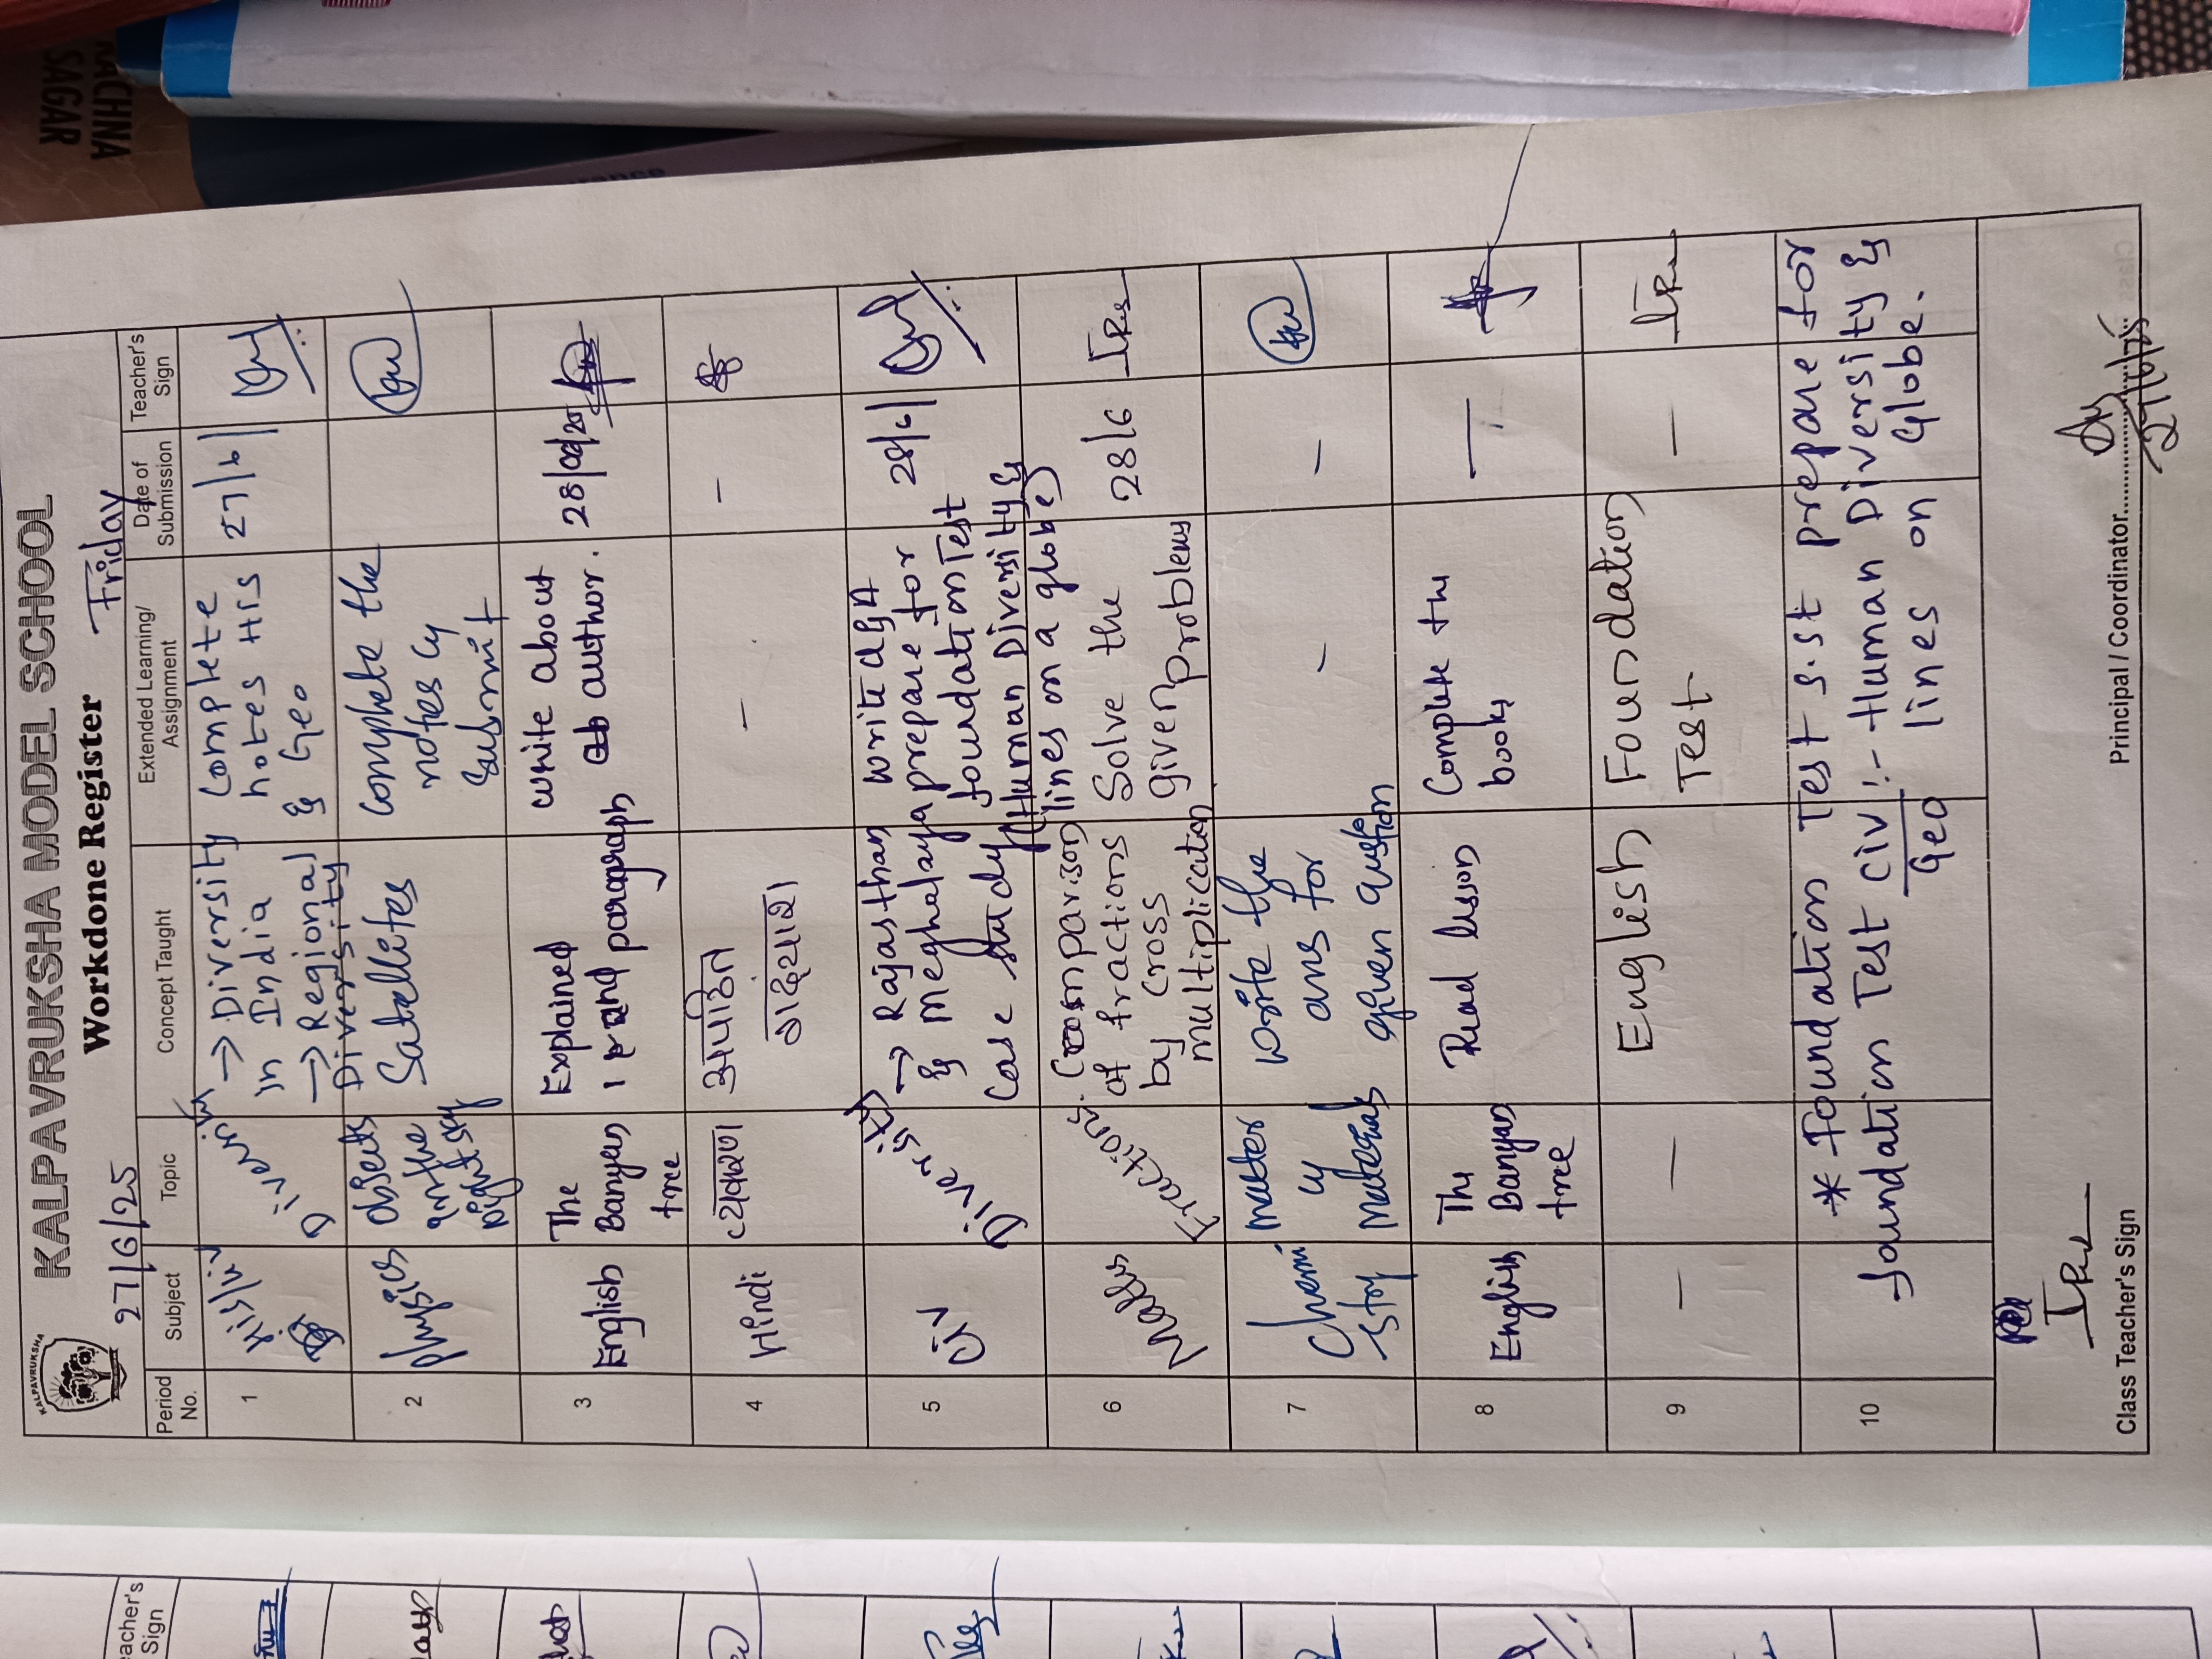 KALPAVRUKSHA
KALPAVRUKSHA MODEL SCHOOL
Workdone Register
27/6/25
Friday
Period No.
Subject
Topic
Concept Taught
Extended Learning/ Assignment
Date of Submission
Teacher's Sign
1
His/civ
Diversity
→ Diversity
in India
→ Regional
Diversity
Complete
notes His
& Geo
27/6/
2
physics
objects
in the
night sky
Satellites
complete the
notes &
submit
3
English
The
Banyan
tree
Explained
1 & 2nd paragraph
write about
author.
28/06/25
4
Hindi
व्याकरण
अपठित
गद्यांश
-
-
5
Civ
Diversity
→ Rajasthan
& meghalaya
Case study
write Q&A
prepare for
foundation Test
(Human Diversity &
lines on a globe)
28/6/
6
Maths
Fractions.
Comparison
of fractions
by cross
multiplication
Solve the
given problems
28/6
7
Chemi
stry
matter
&
materials
write the
ans for
given question
-
-
8
English
The
Banyan
tree
Read lesson
Complete the
books
—
9
—
—
English
Foundation
Test
—
10
* Foundation Test s.st prepare for
foundation Test civ :- Human Diversity &
Geo lines on Globe.
Class Teacher's Sign
Principal / Coordinator
27/6/25
Teacher's
Sign
RACHNA
SAGAR